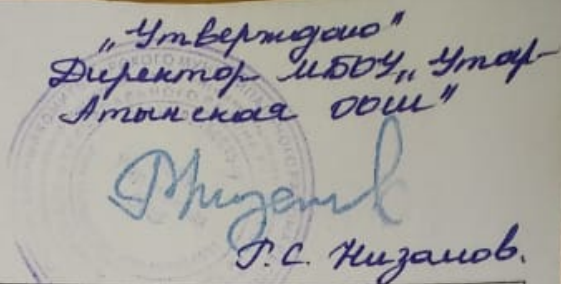 „Утверждаю"
Директор МБОУ „Утар-
Атынская ООШ"
Г.С. Низамов.